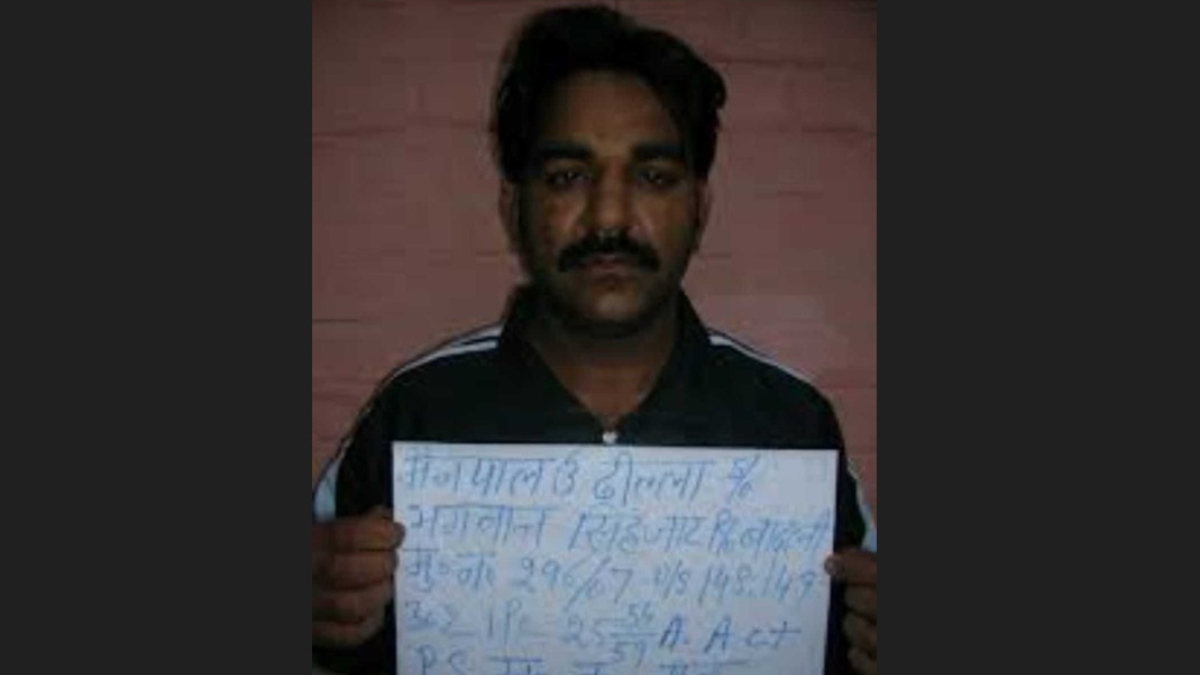 मनपाल उ ढील्ला S/o
भगवान सिंह जाट R/o बादली
मु०न० 290/07 u/s 148.149
302 IPC 25 54 59 A. Act
P.S